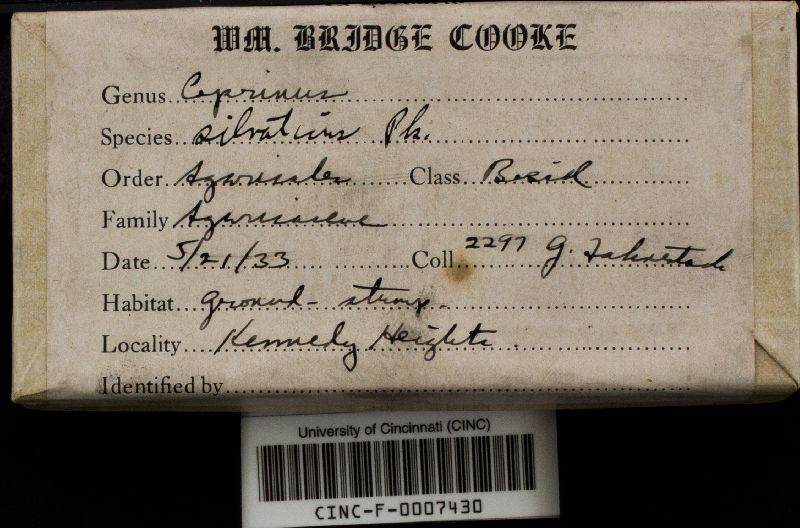 WM. BRIDGE COOKE
Genus Coprinus
Species silvaticus Pk.
Order Agaricales Class Basid.
Family Agaricaceae
Date 5/21/33 Coll 2297 G.
Habitat Ground - stump -
Locality Kennedy Heights
Identified by
University of Cincinnati (CINC)
CINC-F-0007430